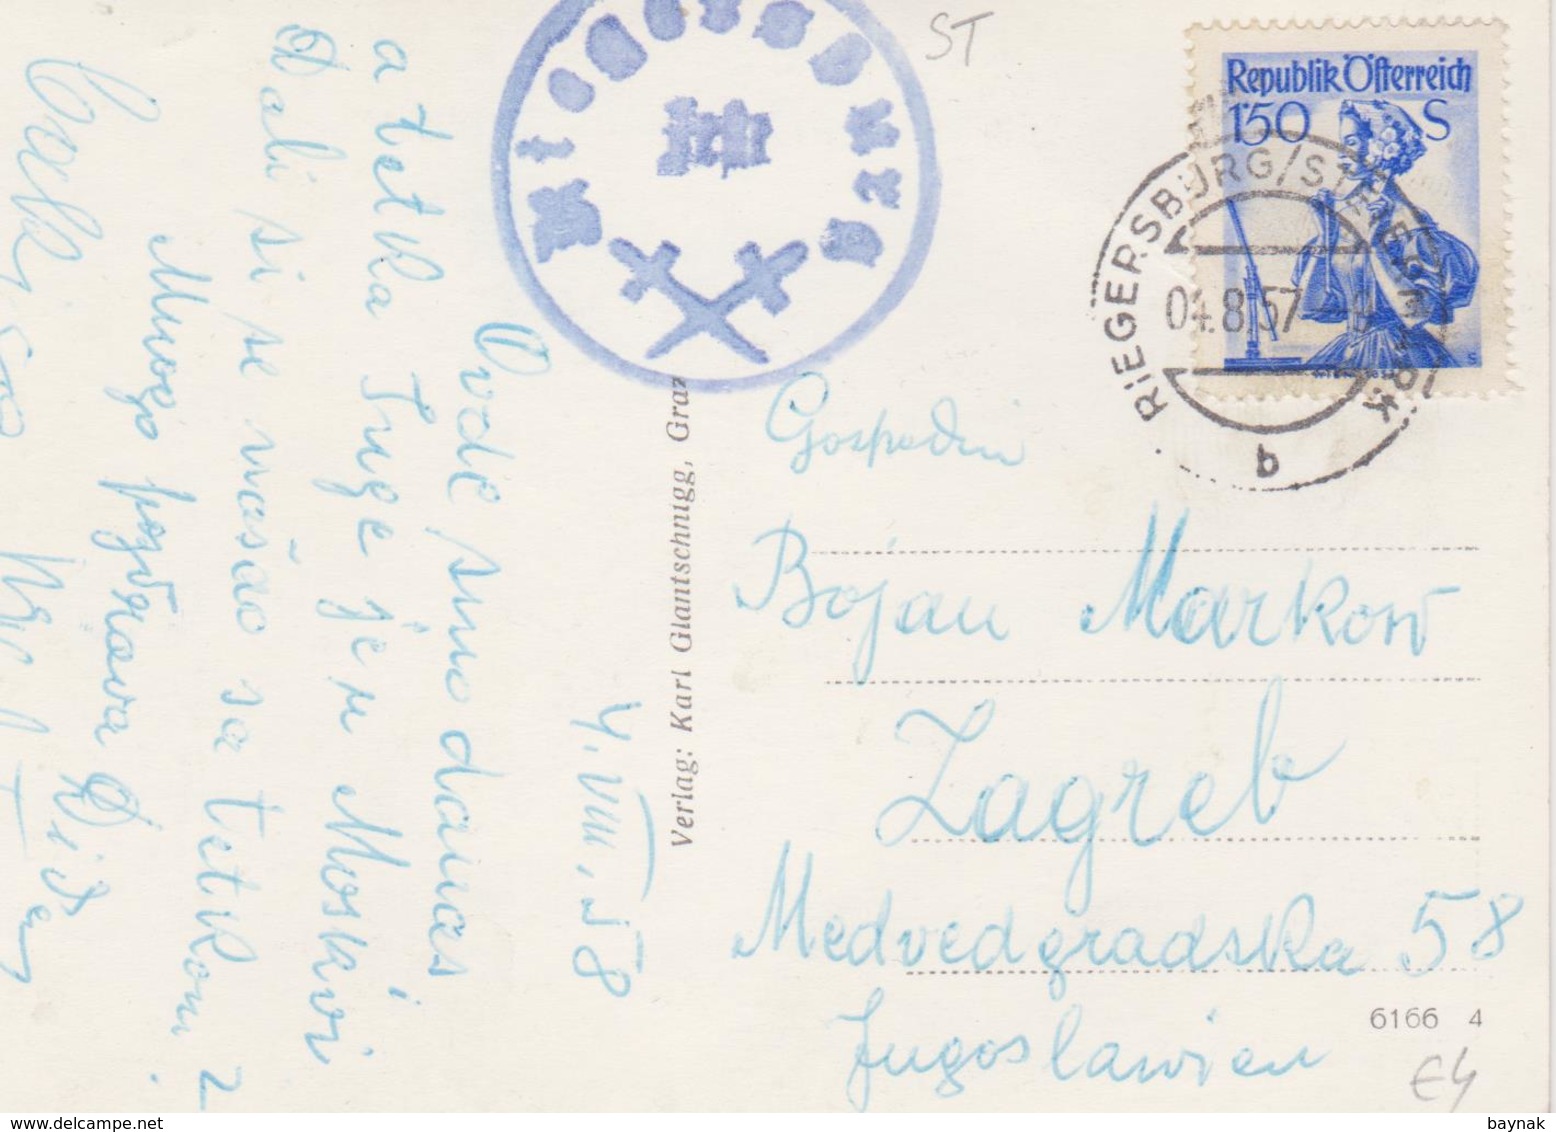 ST
Republik Österreich
1'50 S
RIEGERSBURG/STEIERMARK
04.8.57
b
Riegersburg
4.VIII.58
Ovde smo danas
a tetka Inge je u Moskvi
Dali si se našao sa tetkom?
Mnogo pozdrava Dida
Verlag: Karl Glantschnigg, Graz
Gospodin
Bojan Markow
Zagreb
Medvedgradska 58
Jugoslawien
6166 4
€4
baynak